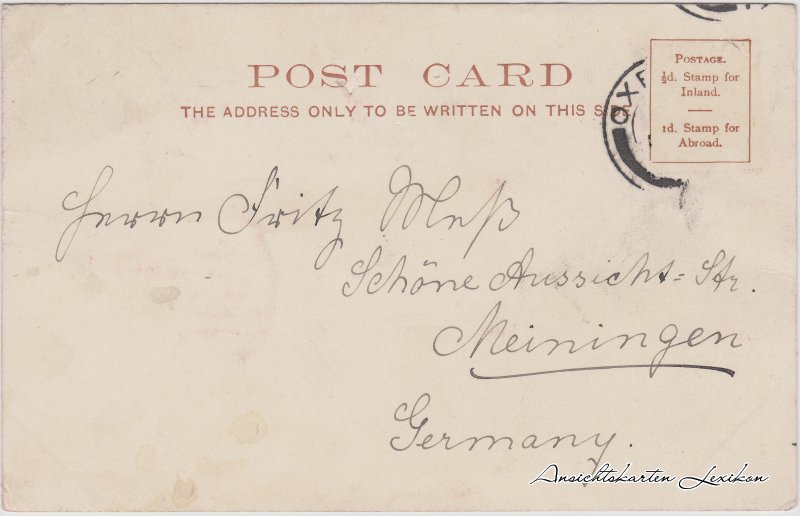 POST CARD
THE ADDRESS ONLY TO BE WRITTEN ON THIS SIDE
POSTAGE.
½d. Stamp for
Inland.
1d. Stamp for
Abroad.
OXF
Herrn Fritz Meß
Schöne Aussicht=Str.
Meiningen
Germany.
Ansichtskarten Lexikon